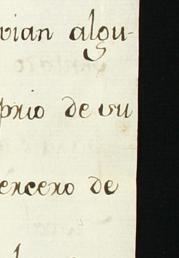 vian algu-
prio de vu
ercero de